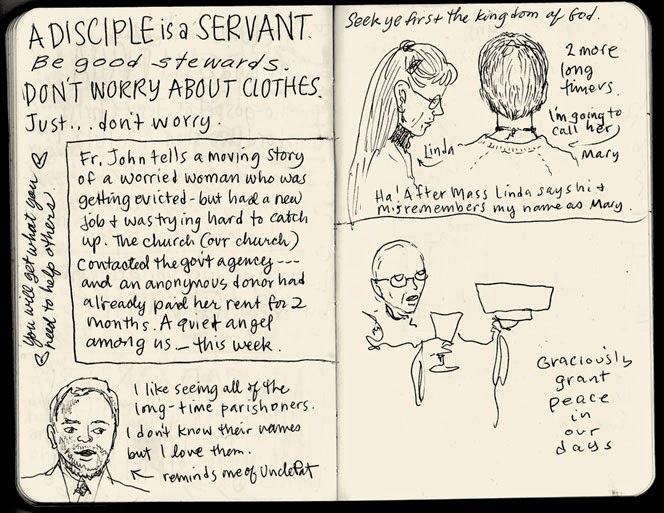 A DISCIPLE is a SERVANT.
Be good stewards.
DON'T WORRY ABOUT CLOTHES.
Just... don't worry.
You will get what you
need to help others
Fr. John tells a moving story
of a worried woman who was
getting evicted - but had a new
job & was trying hard to catch
up. The church (our church)
contacted the gov't agency ----
and an anonymous donor had
already paid her rent for 2
months. A quiet angel
among us — this week.
I like seeing all of the
long-time parishoners.
I don't know their names
but I love them.
reminds me of Uncle Pat
Seek ye first the kingdom of God.
2 more
long
timers.
I'm going to
call her
Mary
Linda
Ha! After Mass Linda says hi &
misremembers my name as Mary.
Graciously
grant
peace
in
our
days